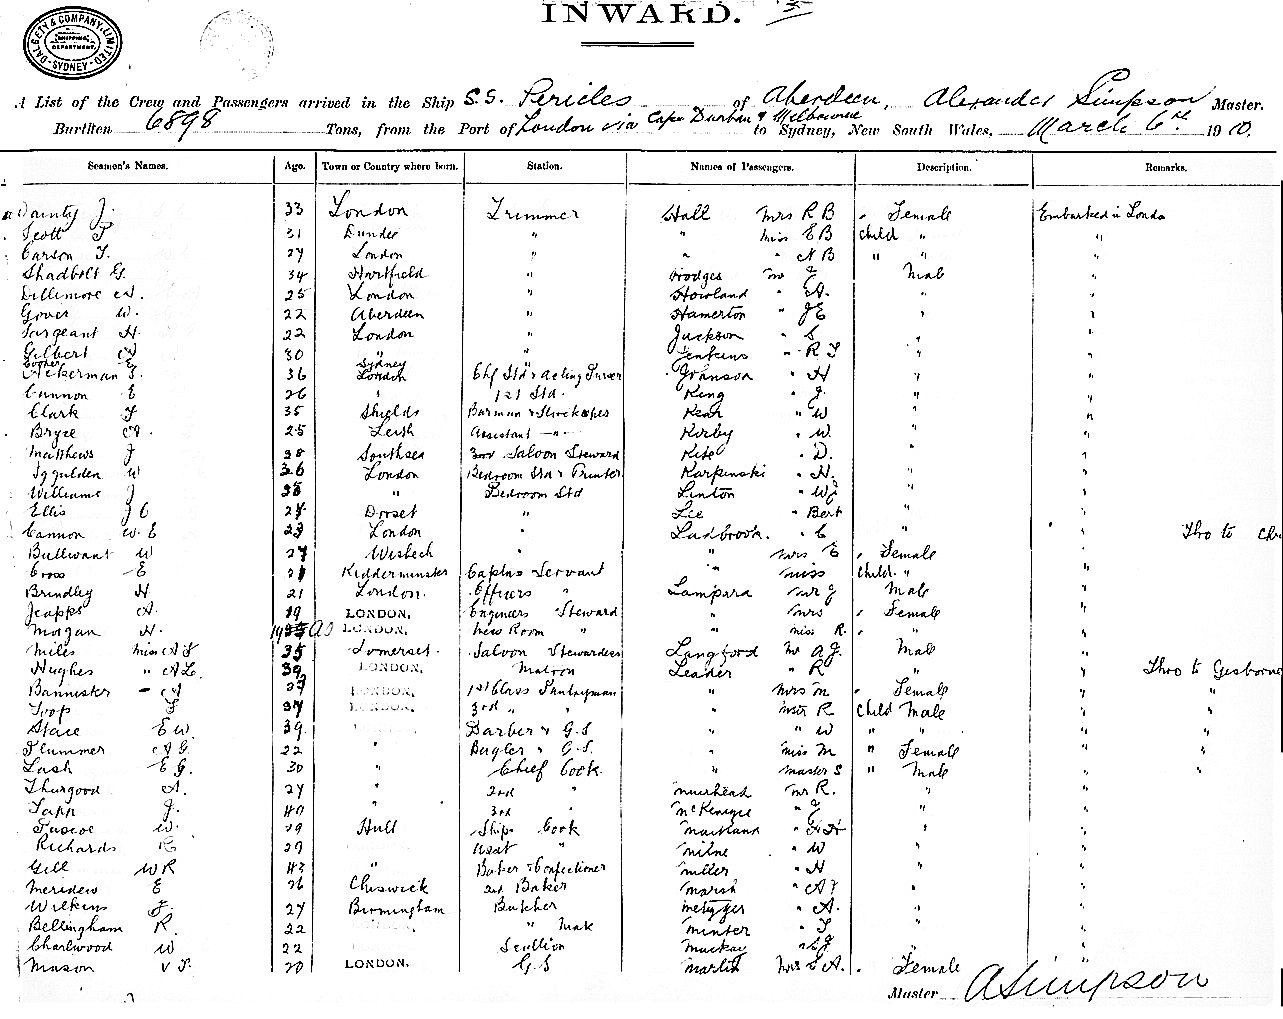 INWARD.
DALGETY & COMPANY, LIMITED
SHIPPING DEPARTMENT.
SYDNEY
A List of the Crew and Passengers arrived in the Ship S.S. Pericles of Aberdeen, Alexander Simpson Master.
Burthen 6898 Tons, from the Port of London via Cape Durban & Melbourne to Sydney, New South Wales, March 6th 1910.
Seamen's Names. Age. Town or Country where born. Station. Names of Passengers. Description. Remarks.
Dainty J. 33 London Trimmer Hall Mrs R B Female Embarked in London
Scott F 31 Dundee " " Miss E B Child " "
Carson T. 27 London " " " N B " " "
Shadbolt G. 34 Hartfield " Hodges Mr E Male "
Dillimore A. 25 London " Howland " A. " "
Gover W. 22 Aberdeen " Hamerton " J E " "
Sargeant H. 22 London " Jackson " S " "
Gilbert A 30 " " Jenkins " R T " "
Sydney
Ackerman F. 36 London Chf Std & Acting Purser Johnson " H " "
Cannon E 26 " 1st Std. King " J. " "
Clark F 35 Shields Barman & Storekeeper Kear " W " "
Bryce A. 25 Leith Assistant " Kirby " W. " "
Matthews J 38 Southsea 3rd Saloon Steward Kite " D. " "
Iggulden W 36 London Bedroom Std & Printer Karpinski " H. " "
Williams J 38 " Bedroom Std Linton " W J " "
Ellis J C 27 Dorset " Lee " Bert " "
Cannon W. E 23 London " Ladbrook. " C " " Thro to Chr
Bullivant W 27 Wisbech " Mrs E Female "
Cross E 21 Kidderminster Captns Servant " Miss Child. " "
Brindley H 21 London. Officers " Lampard Mr J Male "
Jeapps A. 19 LONDON. Engineers Steward " Mrs Female "
Morgan H. 19 LONDON. Mess Room " " Miss R. " "
Miles Miss A F 35 Somerset. Saloon Stewardess Langford Mr A J. Male "
Hughes " A L. 39 LONDON. Matron Leader " R " " Thro to Gisborne
Bannister A 27 LONDON. 1st Class Pantryman " Mrs M Female " "
Toop F 37 LONDON. 3rd " " Mstr R Child Male " "
Stace E W. 39 Barber & G.S " " W " " " "
Plummer A G. 22 " Bugler & G.S. " Miss M " Female " "
Lash E G. 30 " Chief Cook. " Master S " Male " "
Thurgood A. 27 " 2nd " Muirhead Mr R. " "
Tapp J. 40 " 3rd " McKenzie " E " "
Pascoe W. 29 Hull Ships Cook Maitland " H " "
Richards R 29 Asst " Milne " W " "
Gill W R 43 " Baker & Confectioner Miller " H " "
Meridew E 26 Chiswick 2nd Baker Marsh " A J " "
Wilkins F. 27 Birmingham Butcher Metzger " A. " "
Bellingham R. 22 " Mate Minter " F " "
Charlwood W 22 Scullion Mackay " " "
Mason V. T. 20 LONDON. G.S Martin Mrs S A. Female "
Master A Simpson